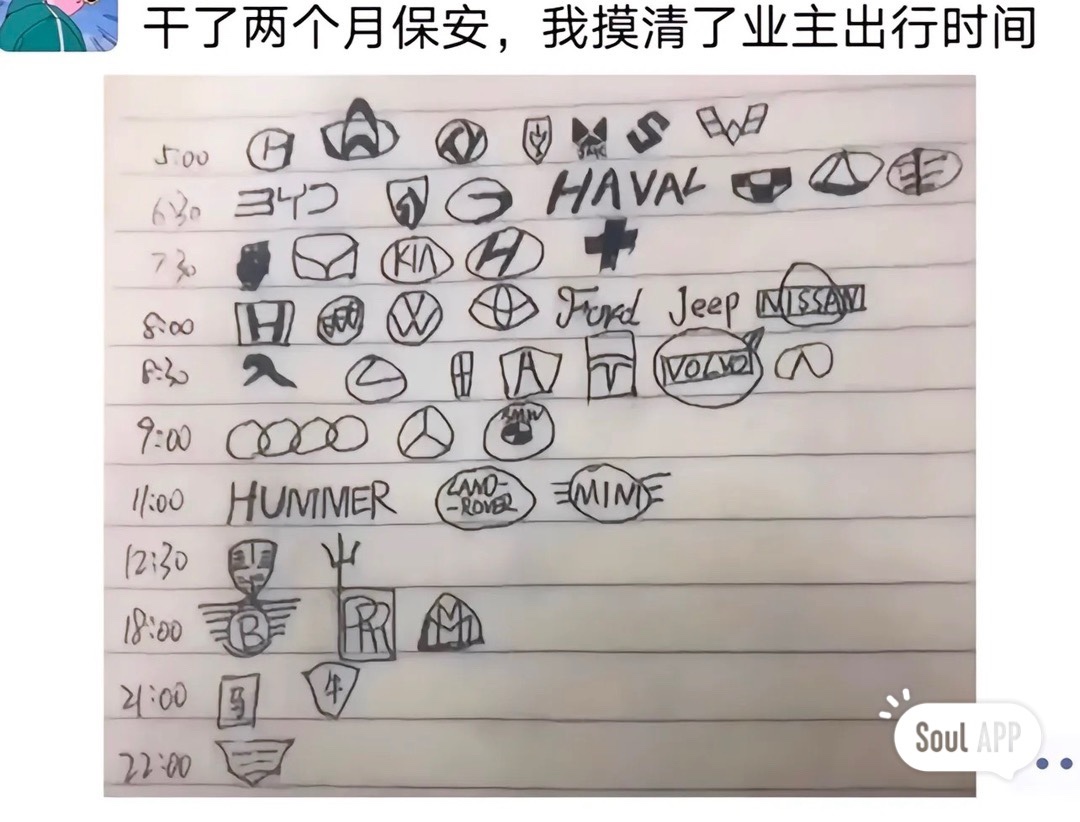 干了两个月保安，我摸清了业主出行时间
5:00 H JAC S W
6:30 BYD HAVAL
7:30 KIA H
8:00 H W Ford Jeep NISSAN
8:30 A T VOLVO
9:00 BMW
11:00 HUMMER LAND-ROVER MINI
12:30
18:00 B RR M
21:00 马 牛
22:00
Soul APP